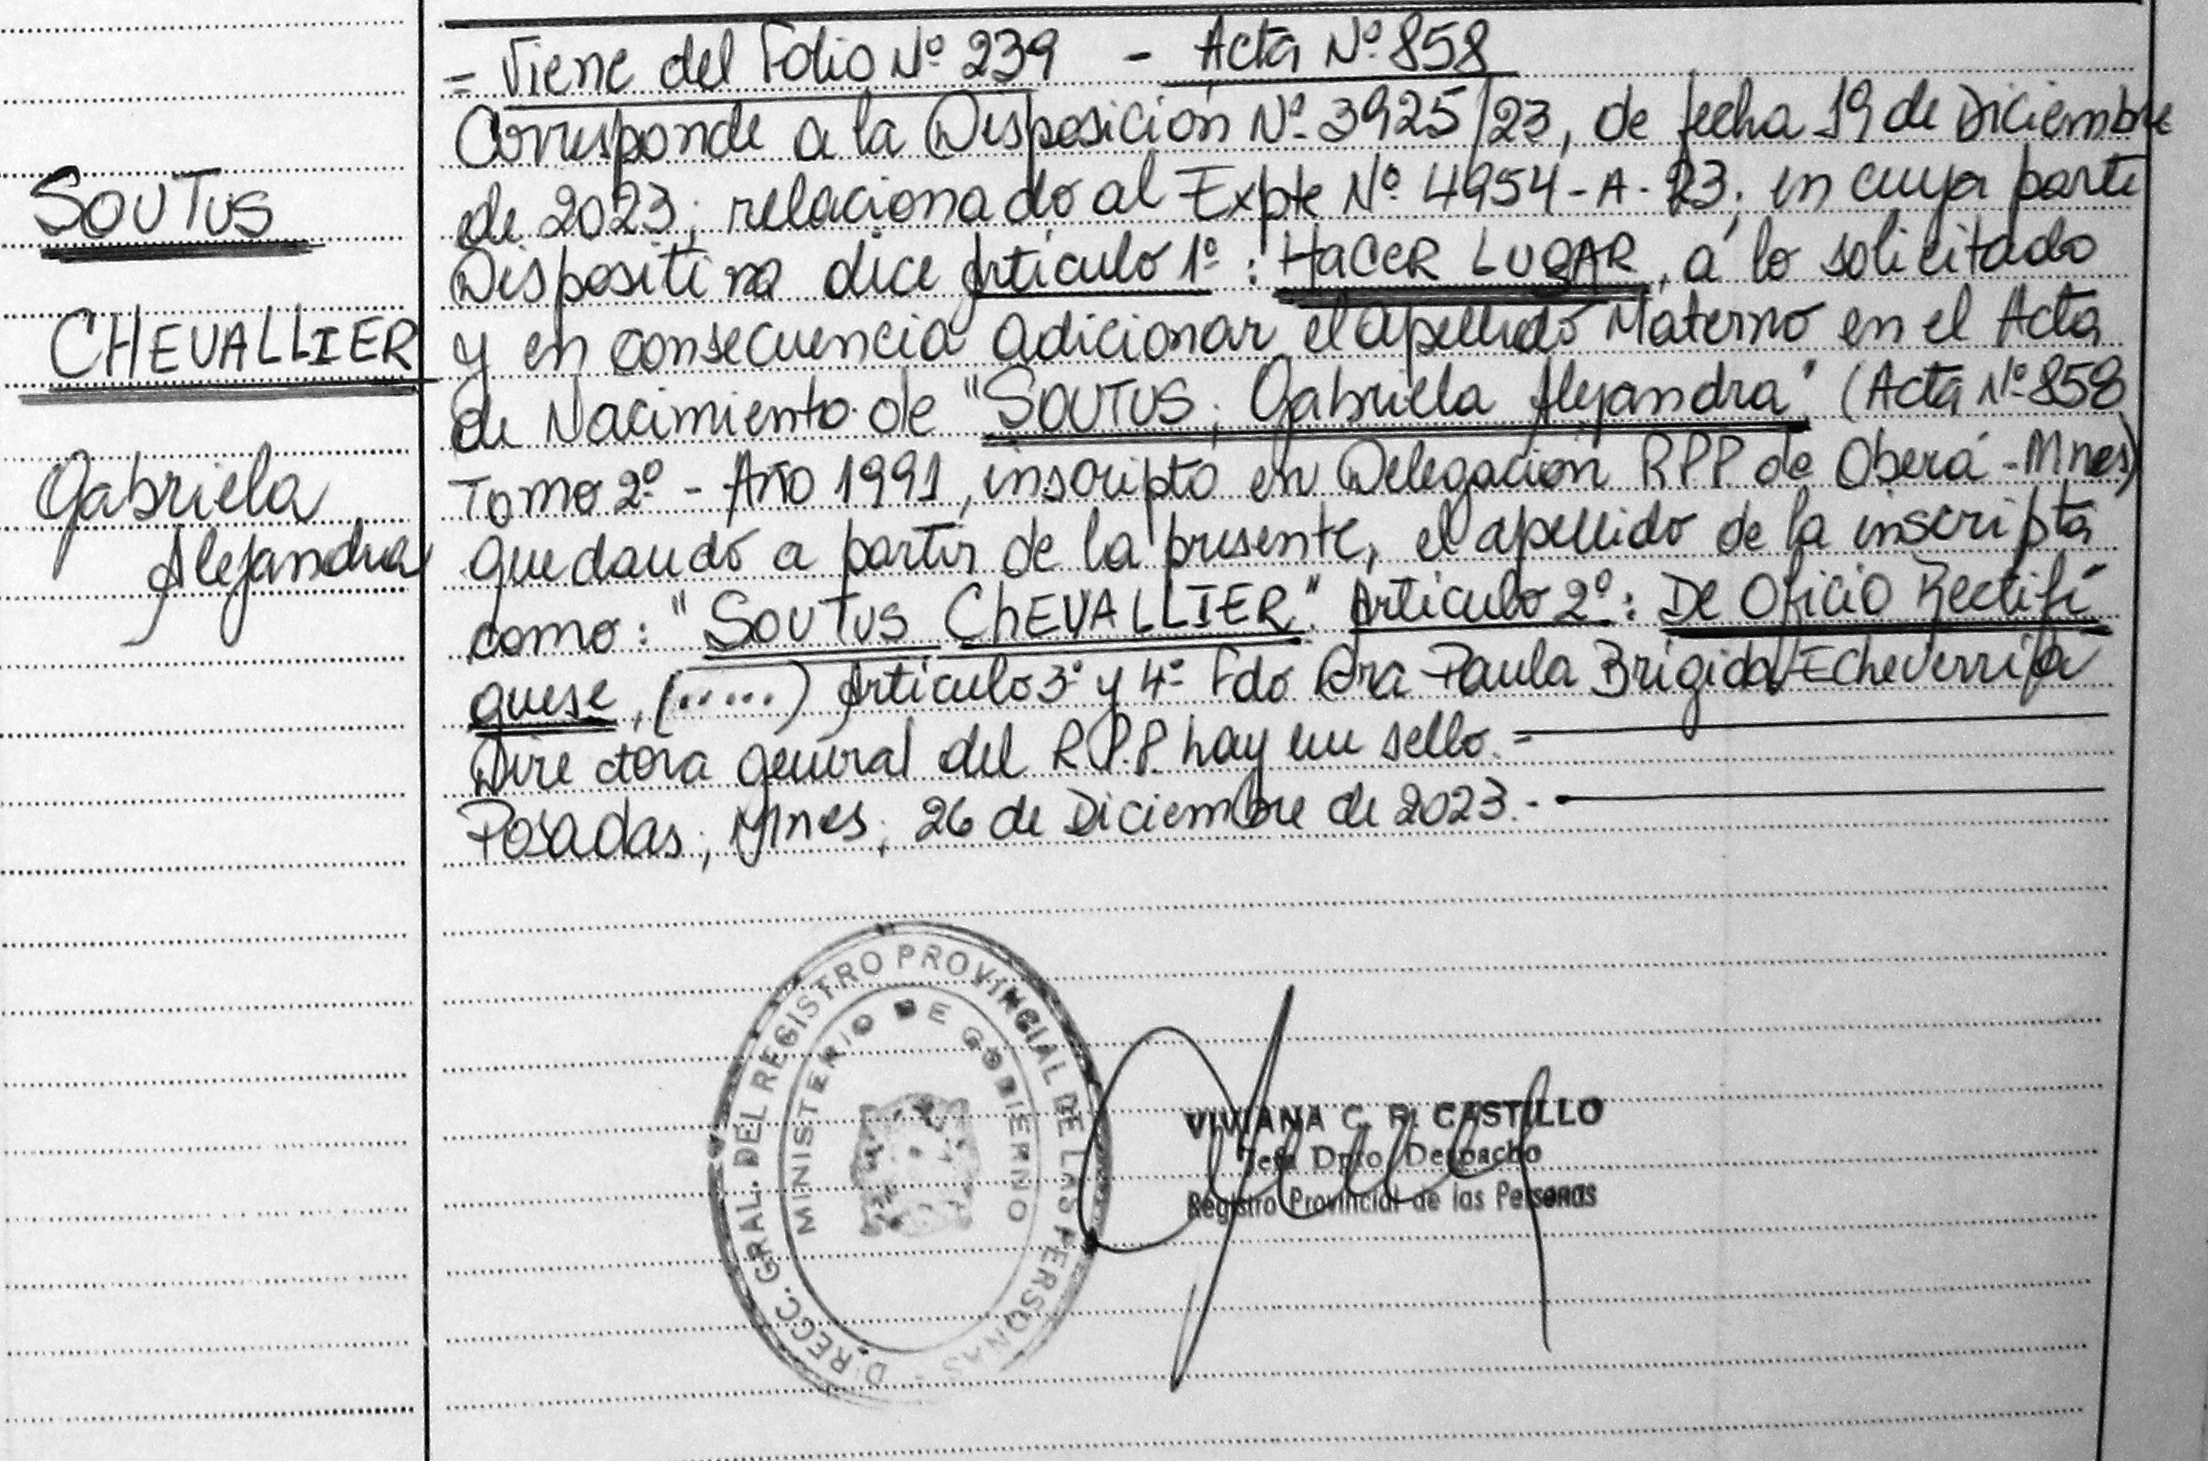 SOUTUS
CHEVALLIER
Gabriela
Alejandra
= Viene del Folio Nº 239 - Acta Nº 858
Corresponde a la Disposición Nº 3925/23, de fecha 19 de Diciembre
de 2023; relacionado al Expte Nº 4954-A-23; en cuya parte
Dispositiva dice Artículo 1º: HACER LUGAR, a lo solicitado
y en consecuencia adicionar el apellido Materno en el Acta
de Nacimiento de "SOUTUS, Gabriella Alejandra" (Acta Nº 858
Tomo 2º - Año 1991, inscripto en Delegación RPP de Oberá-Mnes)
quedando a partir de la presente, el apellido de la inscripta
como: "SOUTUS CHEVALLIER". Artículo 2º: De Oficio Rectifí
quese, (.....) Artículo 3º y 4º Fdo Dra Paula Brigida Echeverria
Directora general del R.P.P. hay un sello.=
Posadas, Mnes, 26 de Diciembre de 2023.-
DIRECC. GRAL. DEL REGISTRO PROVINCIAL DE LAS PERSONAS
MINISTERIO DE GOBIERNO
VIVIANA C. R. CASTILLO
Jefa Dpto. Despacho
Registro Provincial de las Personas